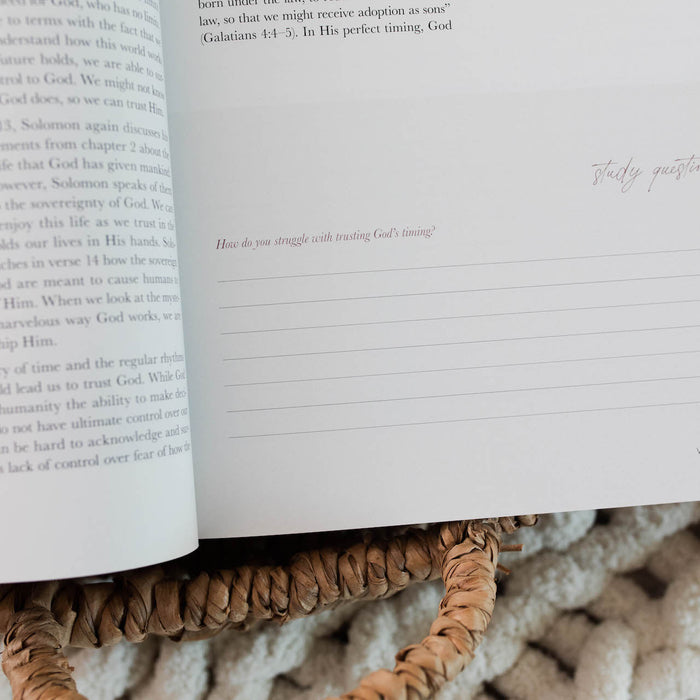 for God, who has no limits,
to terms with the fact that
understand how this world works
future holds, we are able to
control to God. We might not know
God does, so we can trust Him.
13, Solomon again discusses
from chapter 2 about the
life that God has given mankind
However, Solomon speaks of
the sovereignty of God. We can
enjoy this life as we trust in the
holds our lives in His hands.
in verse 14 how the
are meant to cause humans
Him. When we look at the
marvelous way God works, we are
Him.
of time and the regular rhythm
lead us to trust God. While God
humanity the ability to make
not have ultimate control over our
can be hard to acknowledge and
lack of control over fear of how the
born under the law, to
law, so that we might receive adoption as sons”
(Galatians 4:4–5). In His perfect timing, God
study
How do you struggle with trusting God's timing?